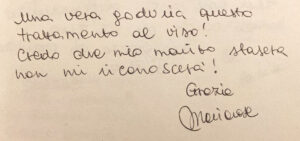 Una vera goduria questo
trattamento al viso!
Credo che mio marito stasera
non mi riconoscerà!
Grazie
Mariarose